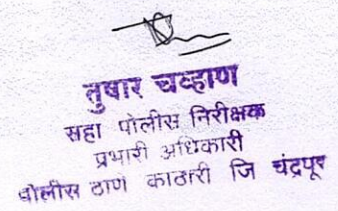 तुषार चव्हाण
सहा पोलीस निरीक्षक
प्रभारी अधिकारी
पोलीस ठाणे काठारी जि चंद्रपूर